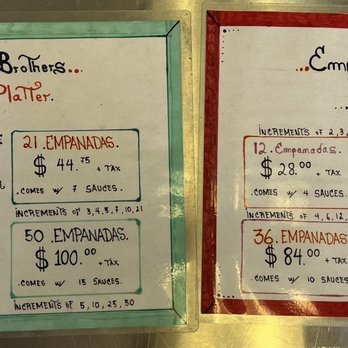 Brothers...
Platter.
21 EMPANADAS.
$ 44.75 + TAX
.COMES w/ 7 SAUCES.
INCREMENTS OF 3,4,5,7,10,21
50 .EMPANADAS.
$ 100.00 + TAX
.COMES w/ 15 SAUCES.
INCREMENTS OF 5, 10, 25, 50
...Emp
INCREMENTS OF 2, 3,
12. Empanadas.
$ 28.00 + TAX
.COMES w/ 4 SAUCES.
INCREMENTS OF 4, 6, 12,
36. EMPANADAS
$ 84.00 + TAX
.COMES w/ 10 SAUCES.
INCREMENTS OF